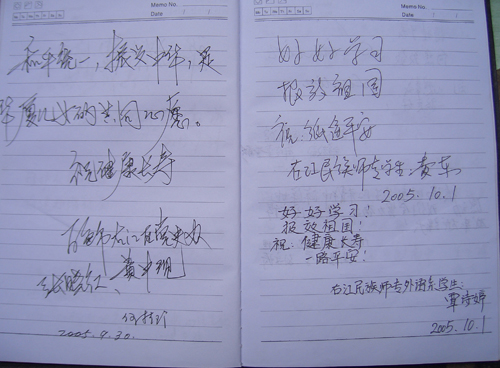 Memo No.
Date / /
和平统一，振兴中华，是
华夏儿女的共同心愿。
祝健康长寿
2005.9.30.
Memo No.
Date / /
好好学习
报效祖国
祝:旅途平安
右江民族师专学生:黄革
2005.10.1
好好学习!
报效祖国!
祝:健康长寿
一路平安!
右江民族师专外语系学生:
覃诗婷
2005.10.1